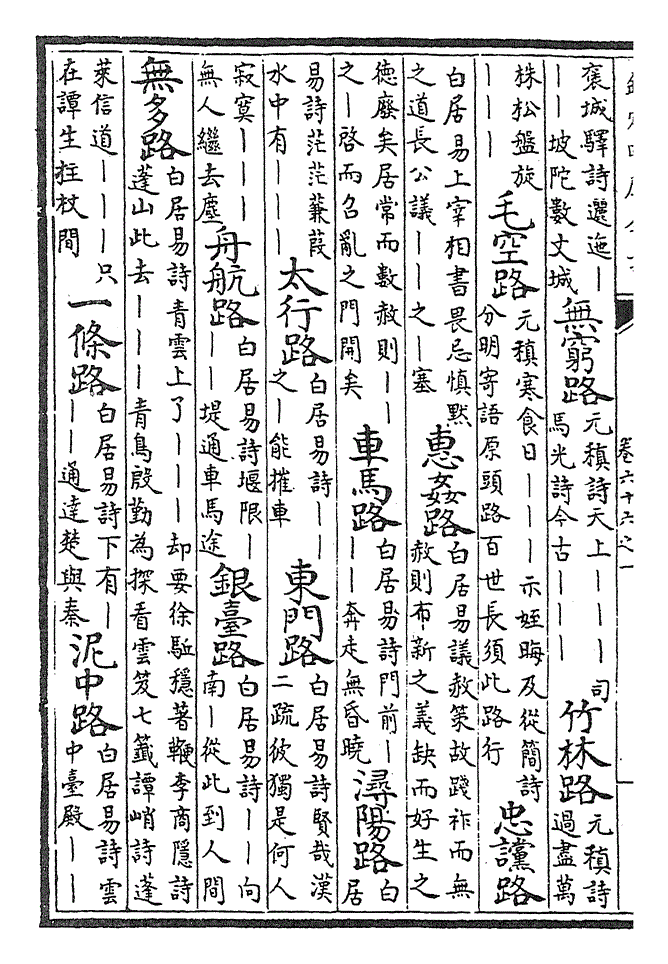 卷六十六之一
褒城驛詩邐迤—
——坡陀數丈城
無窮路
元稹詩天上———司
馬光詩今古———
竹林路
元稹詩
過盡萬
株松盤旋
———
毛空路
元稹寒食日———示姪晦及從簡詩
分明寄語原頭路百世長須此路行
忠讜路
白居易上宰相書畏忌慎黙
之道長公議——之—塞
惠姦路
白居易議赦策故踐祚而無
赦則布新之義缺而好生之
徳廢矣居常而數赦則——
之—啓而召亂之門開矣
車馬路
白居易詩門前—
——奔走無昏曉
潯陽路
白
居
易詩茫茫蒹葭
水中有———
太行路
白居易詩——
之—能摧車
東門路
白居易詩賢哉漢
二疏彼獨是何人
寂寞———
無人繼去塵
舟航路
白居易詩堰限—
——堤通車馬途
銀臺路
白居易詩——向
南—從此到人間
無多路
白居易詩青雲上了———却要徐驅穩著鞭李商隱詩
蓬山此去———青鳥殷勤為探看雲笈七籤譚峭詩蓬
萊信道———只
在譚生拄杖間
一條路
白居易詩下有—
——通達楚與秦
泥中路
白居易詩雲
中臺殿——